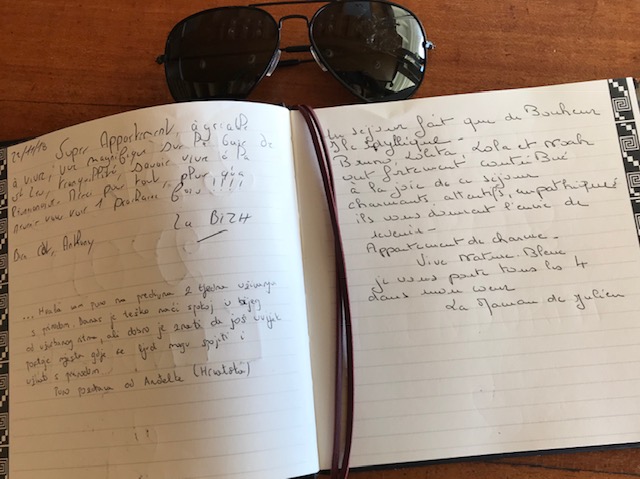 Super Appartement, agréable
à vivre, vue magnifique sur le Golfe de
et Leur tranquillité, savoir vivre à la
Merci pour tout, plus qu'à
venir vous voir 1 prochaine fois !!!!
La BIZH
Ben, Anthony
... Hvala vam puno na predivna 2 tjedna uživanja
s prirodom. Danas je teško naći spokoj u bijeg
od užurbanog, ali dobro je znati da još uvijek
postoje mjesta gdje se ljudi mogu spojiti i
uživati s prirodom.
Puno pozdrava od Anđelke (Hrvatska)
Un séjour fait que de Bonheur
Idyllique -
Bruno, Lolita, Lola et Noah
ont fortement contribué
à la joie de ce séjour
charmants, attentifs, empathiques
ils vous donnent l'envie de
revenir -
Appartement de charme -
Vive Nature-Bleue
je vous porte tous les 4
dans mon cœur
La Maman de Julien